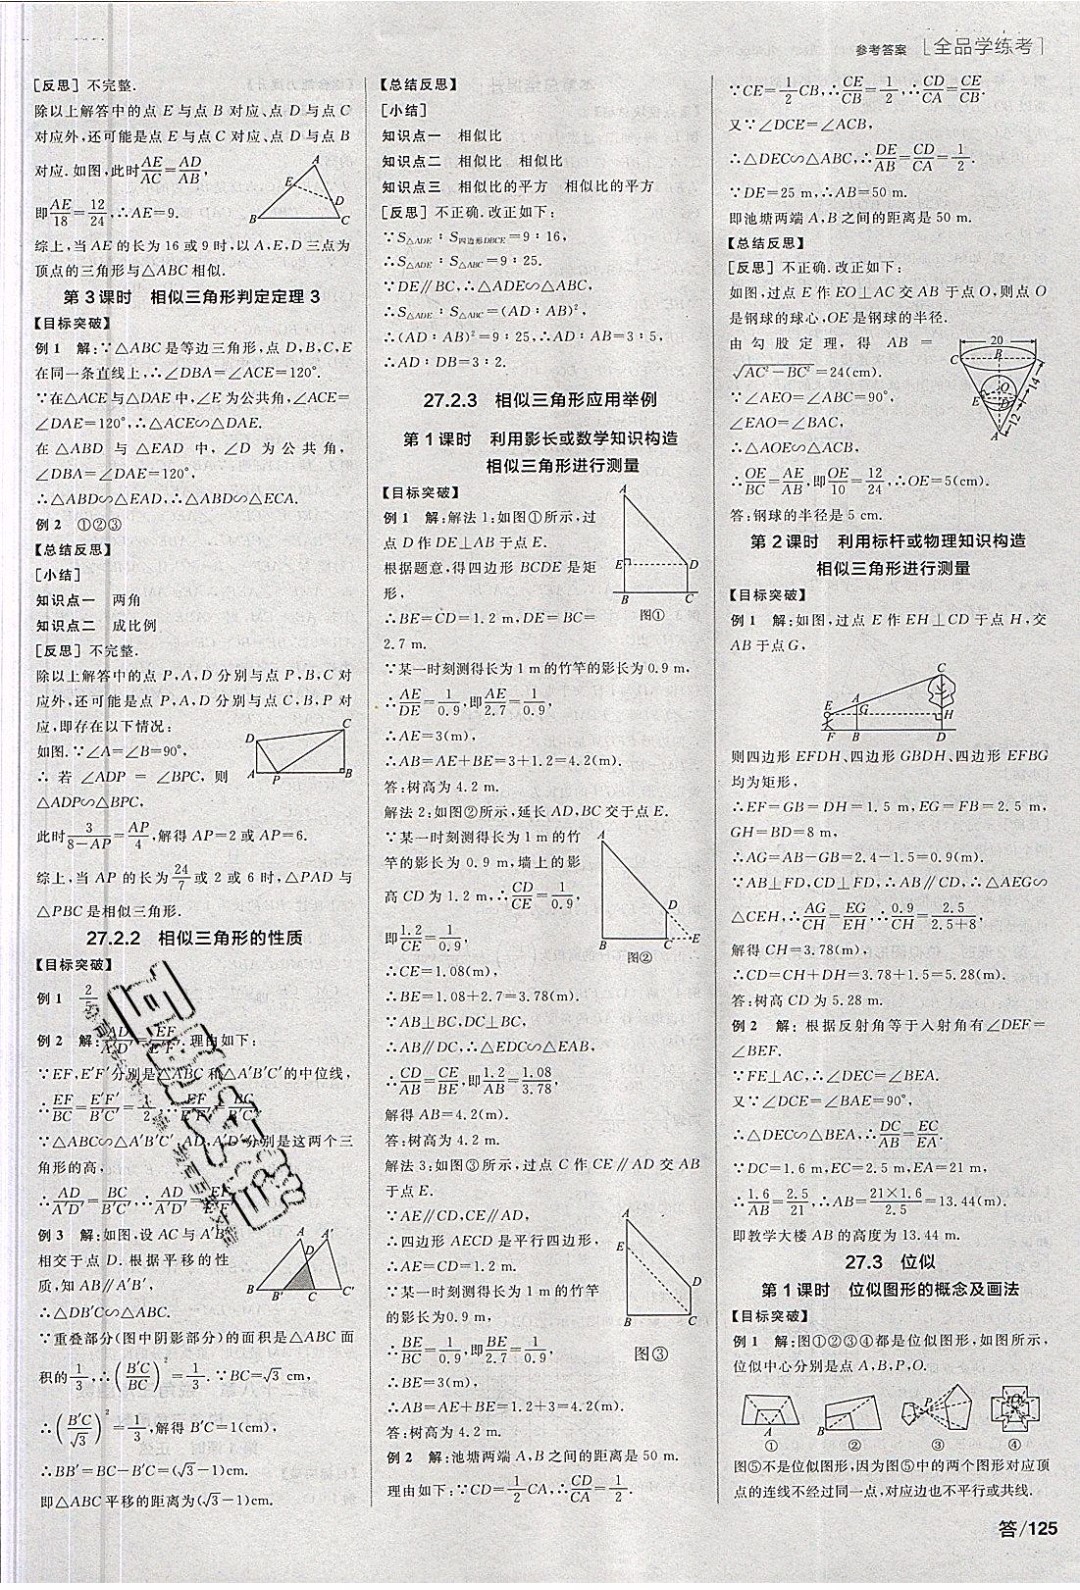 参考答案 [全品学练考]
[反思] 不完整.
除以上解答中的点 E 与点 B 对应、点 D 与点 C
对应外,还可能是点 E 与点 C 对应、点 D 与点 B
对应.如图,此时AE/AC=AD/AB,
即AE/18=12/24,∴AE=9.
综上,当 AE 的长为 16 或 9 时,以 A,E,D 三点为
顶点的三角形与△ABC 相似.
第 3 课时 相似三角形判定定理 3
【目标突破】
例 1 解:∵△ABC 是等边三角形,点 D,B,C,E
在同一条直线上,∴∠DBA=∠ACE=120°.
∵在△ACE 与△DAE 中,∠E 为公共角,∠ACE=
∠DAE=120°,∴△ACE∽△DAE.
在 △ABD 与 △EAD 中, ∠D 为 公 共 角,
∠DBA=∠DAE=120°,
∴△ABD∽△EAD,∴△ABD∽△ECA.
例 2 ①②③
【总结反思】
[小结]
知识点一 两角
知识点二 成比例
[反思] 不完整.
除以上解答中的点 P,A,D 分别与点 P,B,C 对
应外,还可能是点 P,A,D 分别与点 C,B,P 对
应,即存在以下情况:
如图.∵∠A=∠B=90°,
∴ 若 ∠ADP = ∠BPC, 则
△ADP∽△BPC,
此时3/(8-AP)=AP/4,解得 AP=2 或 AP=6.
综上,当 AP 的长为24/7或 2 或 6 时,△PAD 与
△PBC 是相似三角形.
27.2.2 相似三角形的性质
【目标突破】
例 1 2/5
例 2 解:AD/A′D′=EF/E′F′.理由如下:
∵EF,E′F′分别是△ABC 和△A′B′C′的中位线,
∴EF/BC=E′F′/B′C′=1/2,∴EF/E′F′=BC/B′C′.
∵△ABC∽△A′B′C′,AD,A′D′分别是这两个三
角形的高,
∴AD/A′D′=BC/B′C′,∴AD/A′D′=EF/E′F′.
例 3 解:如图,设 AC 与 A′B′
相交于点 D.根据平移的性
质,知 AB∥A′B′,
∴△DB′C∽△ABC.
∵重叠部分(图中阴影部分)的面积是△ABC 面
积的1/3,∴(B′C/BC)²=1/3.∵BC=√3 cm,
∴(B′C/√3)²=1/3,解得 B′C=1(cm),
∴BB′=BC-B′C=(√3-1)cm.
即△ABC 平移的距离为(√3-1)cm.
【总结反思】
[小结]
知识点一 相似比
知识点二 相似比 相似比
知识点三 相似比的平方 相似比的平方
[反思] 不正确.改正如下:
∵S△ADE∶S四边形DBCE=9∶16,
∴S△ADE∶S△ABC=9∶25.
∵DE∥BC,∴△ADE∽△ABC,
∴S△ADE∶S△ABC=(AD∶AB)²,
∴(AD∶AB)²=9∶25,∴AD∶AB=3∶5,
∴AD∶DB=3∶2.
27.2.3 相似三角形应用举例
第 1 课时 利用影长或数学知识构造
相似三角形进行测量
【目标突破】
例 1 解:解法 1:如图①所示,过
点 D 作 DE⊥AB 于点 E.
根据题意,得四边形 BCDE 是矩
形,
∴BE=CD=1.2 m,DE=BC=
2.7 m.
图①
∵某一时刻测得长为 1 m 的竹竿的影长为 0.9 m,
∴AE/DE=1/0.9,即AE/2.7=1/0.9,
∴AE=3(m),
∴AB=AE+BE=3+1.2=4.2(m).
答:树高为 4.2 m.
解法 2:如图②所示,延长 AD,BC 交于点 E.
∵某一时刻测得长为 1 m 的竹
竿的影长为 0.9 m,墙上的影
高 CD 为 1.2 m,∴CD/CE=1/0.9,
即1.2/CE=1/0.9,
图②
∴CE=1.08(m),
∴BE=1.08+2.7=3.78(m).
∵AB⊥BC,DC⊥BC,
∴AB∥DC,∴△EDC∽△EAB,
∴CD/AB=CE/BE,即1.2/AB=1.08/3.78,
解得 AB=4.2(m).
答:树高为 4.2 m.
解法 3:如图③所示,过点 C 作 CE∥AD 交 AB
于点 E.
∵AE∥CD,CE∥AD,
∴四边形 AECD 是平行四边形,
∴AE=CD=1.2 m.
∵某一时刻测得长为 1 m 的竹竿
的影长为0.9 m,
∴BE/BC=1/0.9,即BE/2.7=1/0.9,
图③
∴BE=3(m),
∴AB=AE+BE=1.2+3=4.2(m).
答:树高为 4.2 m.
例 2 解:池塘两端 A,B 之间的距离是 50 m.
理由如下:∵CD=1/2CA,∴CD/CA=1/2.
∵CE=1/2CB,∴CE/CB=1/2,∴CD/CA=CE/CB.
又∵∠DCE=∠ACB,
∴△DEC∽△ABC,∴DE/AB=CD/CA=1/2.
∵DE=25 m,∴AB=50 m.
即池塘两端 A,B 之间的距离是 50 m.
【总结反思】
[反思] 不正确.改正如下:
如图,过点 E 作 EO⊥AC 交 AB 于点 O,则点 O
是钢球的球心,OE 是钢球的半径.
由 勾 股 定 理, 得 AB =
√AC²-BC²=24(cm).
∵∠AEO=∠ABC=90°,
∠EAO=∠BAC,
∴△AOE∽△ACB,
∴OE/BC=AE/AB,即OE/10=12/24,∴OE=5(cm).
答:钢球的半径是 5 cm.
第 2 课时 利用标杆或物理知识构造
相似三角形进行测量
【目标突破】
例 1 解:如图,过点 E 作 EH⊥CD 于点 H,交
AB 于点 G,
则四边形 EFDH、四边形 GBDH、四边形 EFBG
均为矩形,
∴EF=GB=DH=1.5 m,EG=FB=2.5 m,
GH=BD=8 m,
∴AG=AB-GB=2.4-1.5=0.9(m).
∵AB⊥FD,CD⊥FD,∴AB∥CD,∴△AEG∽
△CEH,∴AG/CH=EG/EH,∴0.9/CH=2.5/(2.5+8),
解得 CH=3.78(m),
∴CD=CH+DH=3.78+1.5=5.28(m).
答:树高 CD 为 5.28 m.
例 2 解: 根据反射角等于入射角有∠DEF=
∠BEF.
∵FE⊥AC,∴∠DEC=∠BEA.
又∵∠DCE=∠BAE=90°,
∴△DEC∽△BEA,∴DC/AB=EC/EA.
∵DC=1.6 m,EC=2.5 m,EA=21 m,
∴1.6/AB=2.5/21,∴AB=21×1.6/2.5=13.44(m).
即教学大楼 AB 的高度为 13.44 m.
27.3 位似
第 1 课时 位似图形的概念及画法
【目标突破】
例 1 解:图①②③④都是位似图形,如图所示,
位似中心分别是点 A,B,P,O.
① ② ③ ④
图⑤不是位似图形,因为图⑤中的两个图形对应顶
点的连线不经过同一点,对应边也不平行或共线.
答/125